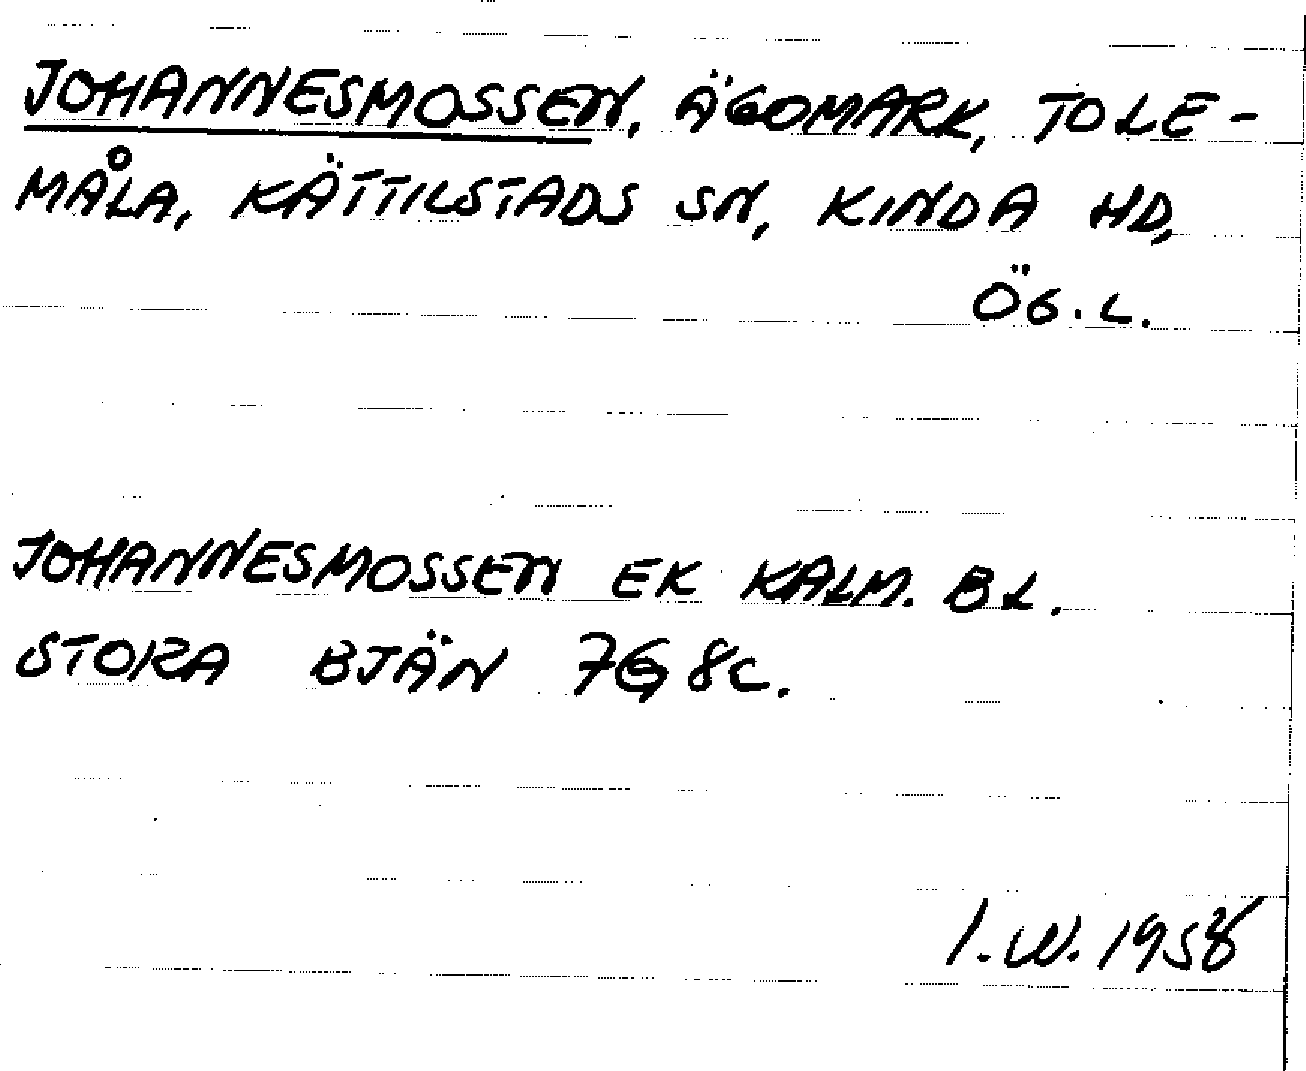 JOHANNESMOSSEN, ÄGOMARK, TOLE-
MÅLA, KÄTTILSTADS SN, KINDA HD,
ÖG.L.
JOHANNESMOSSEN EK KALM. BL.
STORA BJÄN 7G 8C.
I.W. 1958